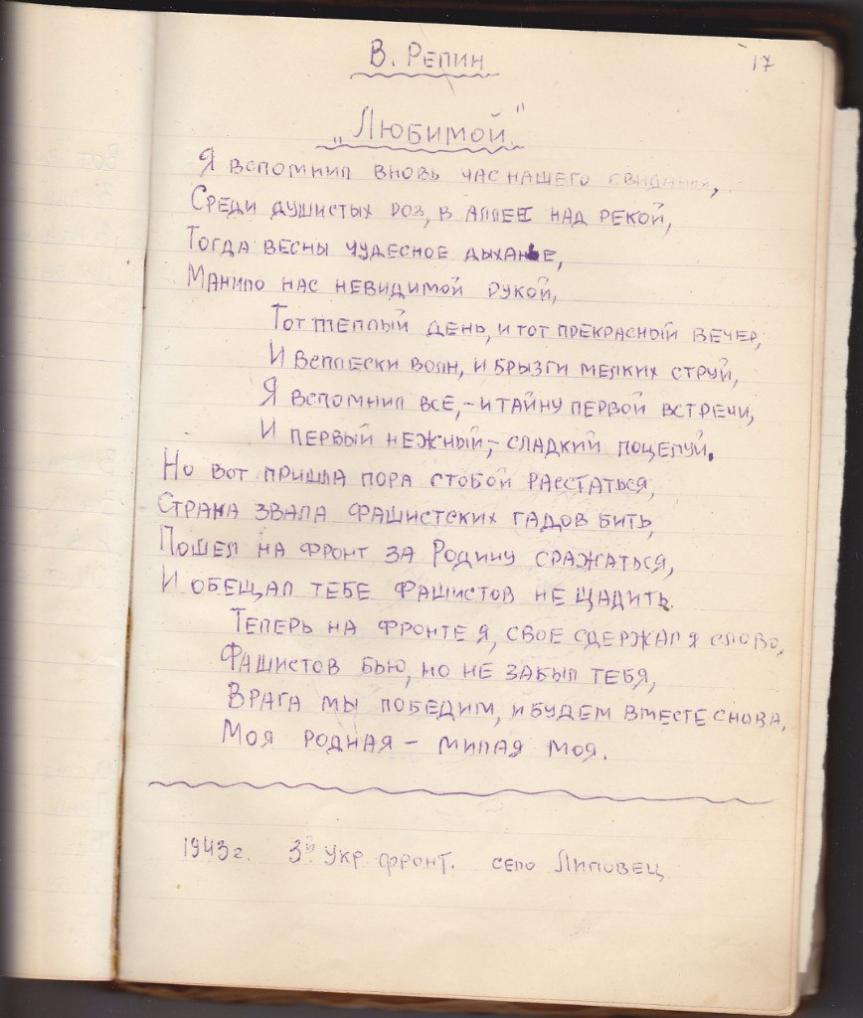 В. Репин
17
„Любимой"
Я вспомнил вновь час нашего свиданья,
Среди душистых роз, в аллеи над рекой,
Тогда весны чудесное дыханье,
Манило нас невидимой рукой,
Тот теплый день, и тот прекрасный вечер,
И всплески волн, и брызги мелких струй,
Я вспомнил все, – и тайну первой встречи,
И первый нежный, – сладкий поцелуй.
Но вот пришла пора стобой расстаться,
Страна звала фашистских гадов бить,
Пошел на фронт за Родину сражаться,
И обещал тебе фашистов не щадить.
Теперь на фронте я, свое сдержал я слово,
Фашистов бью, но не забыл тебя,
Врага мы победим, и будем вместе снова,
Моя родная – милая моя.
1943 г. 3й Укр. фронт. село Липовец